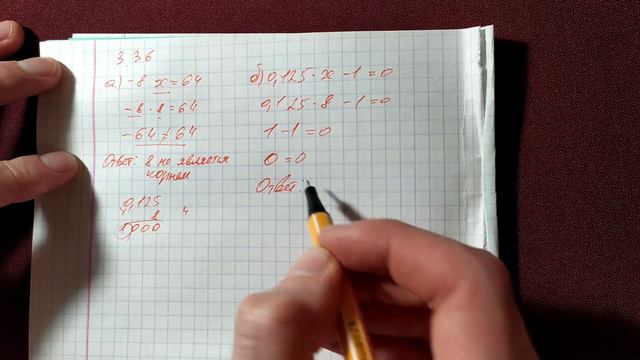 3.36
а) -8 x = 64
-8 · 8 = 64
-64 ≠ 64
Ответ: 8 не является
корнем
0,125
8
1,000
б) 0,125 · x - 1 = 0
0,125 · 8 - 1 = 0
1 - 1 = 0
0 = 0
Ответ: